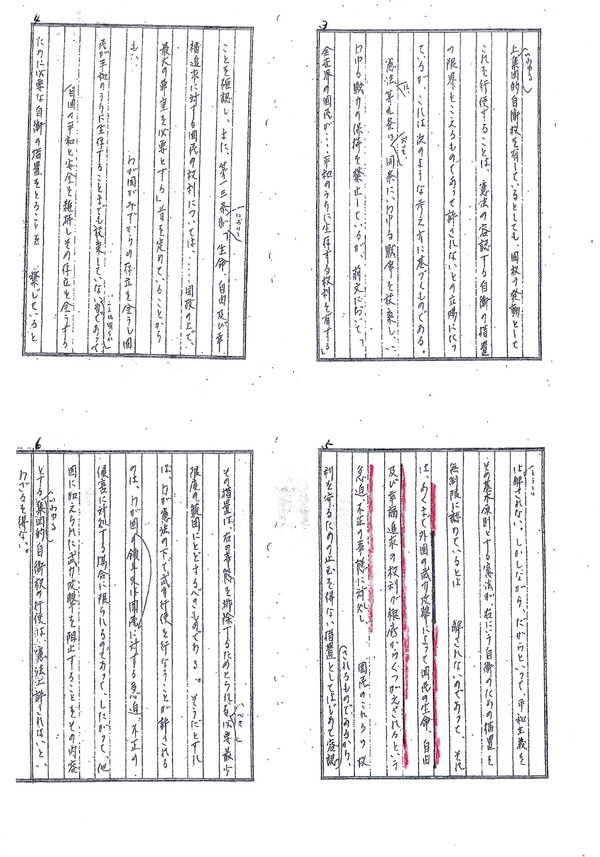 3
(いわゆる)
上集団的自衛権を有しているとしても、国権の発動として
これを行使することは、憲法の容認する自衛の措置
の限界をこえるものであって許されないとの立場にたつ
ているが、これは次のような考え方に基づくものである。
憲法は、第九条において、同条にいわゆる戦争を放棄し、い
わゆる戦力の保持を禁止しているが、前文において「
全世界の国民が‥‥平和のうちに生存する権利を有する」
4
ことを確認し、また、第一三条において「生命、自由及び幸
福追求に対する国民の権利については、‥‥国政の上で、
最大の尊重を必要とする」旨を定めていることから
も、わが国がみずからの存立を全うし国
民が平和のうちに生存することまでも放棄していないことは明らかであって
自国の平和と安全を維持しその存立を全うする
ために必要な自衛の措置をとることを禁じていると
5
(とうてい)
は解されない。しかしながら、だからといって、平和主義を
その基本原則とする憲法が、右にいう自衛のための措置を
無制限に認めているとは解されないのであって、それ
は、あくまで外国の武力攻撃によって国民の生命、自由
及び幸福追求の権利が根底からくつがえされるという
急迫、不正の事態に対処し、国民のこれらの権
利を守るための止むを得ない措置としてはじめて容認
されるものであるから、
6
その措置は、右の事態を排除するためとられるべき必要最少
限度の範囲にとどまるべきものである。そうだとすれ
ば、わが憲法の下で武力行使を行なうことが許される
のは、わが国の領土又は国民に対する急迫、不正の
侵害に対処する場合に限られるのであって、したがって、他
国に加えられた武力攻撃を阻止することをその内容
とするいわゆる集団的自衛権の行使は、憲法上許されないとい
わざるを得ない。